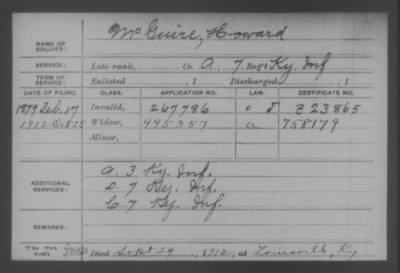 McGuire, Howard
NAME OF SOLDIER:
SERVICE: Late rank, Co. A, 7 Reg't Ky. Inf
TERM OF SERVICE: Enlisted , 1 Discharged , 1
DATE OF FILING. CLASS. APPLICATION NO. LAW. CERTIFICATE NO.
1879 Feb. 17 Invalid, 267786 323865
1912 Oct 25 Widow, 995357 a 758179
Minor,
ADDITIONAL SERVICES:
A. 3 Ky. Inf.
D. 7 Ky. Inf.
C. 7 Ky. Inf.
REMARKS:
Died Sept 29, 1912, at Louisville, Ky